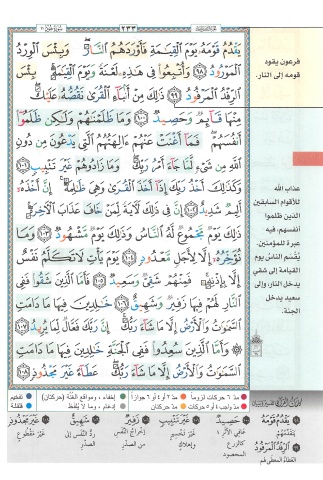 ٢٣٣
يَقْدُمُ قَوْمَهُۥ يَوْمَ ٱلْقِيَٰمَةِ فَأَوْرَدَهُمُ ٱلنَّارَ ۖ وَبِئْسَ ٱلْوِرْدُ
ٱلْمَوْرُودُ ٩٨ وَأُتْبِعُوا۟ فِى هَٰذِهِۦ لَعْنَةً وَيَوْمَ ٱلْقِيَٰمَةِ ۚ بِئْسَ
ٱلرِّفْدُ ٱلْمَرْفُودُ ٩٩ ذَٰلِكَ مِنْ أَنۢبَآءِ ٱلْقُرَىٰ نَقُصُّهُۥ عَلَيْكَ ۖ
مِنْهَا قَآئِمٌ وَحَصِيدٌ ١٠٠ وَمَا ظَلَمْنَٰهُمْ وَلَٰكِن ظَلَمُوٓا۟
أَنفُسَهُمْ ۖ فَمَآ أَغْنَتْ عَنْهُمْ ءَالِهَتُهُمُ ٱلَّتِى يَدْعُونَ مِن دُونِ
ٱللَّهِ مِن شَىْءٍ لَّمَّا جَآءَ أَمْرُ رَبِّكَ ۖ وَمَا زَادُوهُمْ غَيْرَ تَتْبِيبٍ ١٠١
وَكَذَٰلِكَ أَخْذُ رَبِّكَ إِذَآ أَخَذَ ٱلْقُرَىٰ وَهِىَ ظَٰلِمَةٌ ۚ إِنَّ أَخْذَهُۥٓ
أَلِيمٌ شَدِيدٌ ١٠٢ إِنَّ فِى ذَٰلِكَ لَءَايَةً لِّمَنْ خَافَ عَذَابَ ٱلْءَاخِرَةِ ۚ
ذَٰلِكَ يَوْمٌ مَّجْمُوعٌ لَّهُ ٱلنَّاسُ وَذَٰلِكَ يَوْمٌ مَّشْهُودٌ ١٠٣ وَمَا
نُؤَخِّرُهُۥٓ إِلَّا لِأَجَلٍ مَّعْدُودٍ ١٠٤ يَوْمَ يَأْتِ لَا تَكَلَّمُ نَفْسٌ
إِلَّا بِإِذْنِهِۦ ۚ فَمِنْهُمْ شَقِىٌّ وَسَعِيدٌ ١٠٥ فَأَمَّا ٱلَّذِينَ شَقُوا۟ فَفِى
ٱلنَّارِ لَهُمْ فِيهَا زَفِيرٌ وَشَهِيقٌ ١٠٦ خَٰلِدِينَ فِيهَا مَا دَامَتِ
ٱلسَّمَٰوَٰتُ وَٱلْأَرْضُ إِلَّا مَا شَآءَ رَبُّكَ ۚ إِنَّ رَبَّكَ فَعَّالٌ لِّمَا يُرِيدُ ١٠٧
وَأَمَّا ٱلَّذِينَ سُعِدُوا۟ فَفِى ٱلْجَنَّةِ خَٰلِدِينَ فِيهَا مَا دَامَتِ
ٱلسَّمَٰوَٰتُ وَٱلْأَرْضُ إِلَّا مَا شَآءَ رَبُّكَ ۖ عَطَآءً غَيْرَ مَجْذُوذٍ ١٠٨
فرعون يقود
قومه إلى النار.
عذاب الله
للأقوام السابقين
الذين ظلموا
أنفسهم، فيه
عبرة للمؤمنين.
يُقْسَم الناس يوم
القيامة إلى شقي
يدخل النار، وإلى
سعيد يدخل
الجنة.
مدّ ٦ حركات لزوماً مدّ ٢ أو ٤ أو ٦ جوازاً إخفاء، ومواقع الغُنَّة (حركتان) تفخيم
مدّ واجب ٤ أو ٥ حركات مدّ حركتان إدغام، وما لا يُلفظ قلقلة
يَقْدُمُ قَوْمَهُ
يتقدّمهم
الرِّفْدُ الْمَرْفُودُ
العطاءُ المُعطى لهم
حَصِيدٌ
عافي الأثر؛
كالزرع
المحصود
غَيْرَ تَتْبِيبٍ
غير تخسير
وإهلاك
زَفِيرٌ
إخراج النَّفَس
من الصدر
شَهِيقٌ
ردّ النَّفَس إلى
الصدر
غَيْرَ مَجْذُوذٍ
غير مقطوع